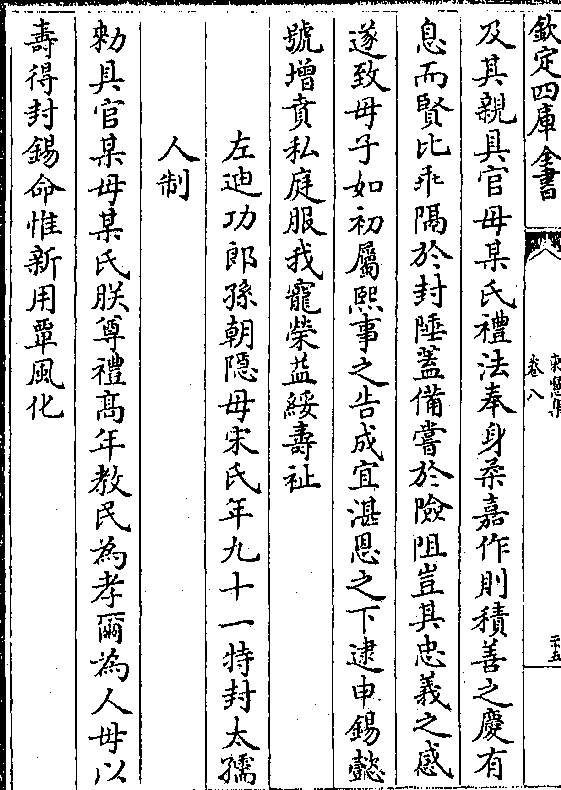 欽定四庫全書
卷八
二十五
及其親具官母某氏禮法奉身柔嘉作則積善之慶有
息而賢比乖隔於封陲蓋備嘗於險阻豈其忠義之感
遂致母子如初屬熙事之告成宜湛恩之下逮申錫懿
號增賁私庭服我寵榮益綏壽祉
左迪功郎孫朝隠母宋氏年九十一特封太孺
人制
勑具官某母某氏朕尊禮髙年教民為孝爾為人母以
壽得封錫命惟新用覃風化